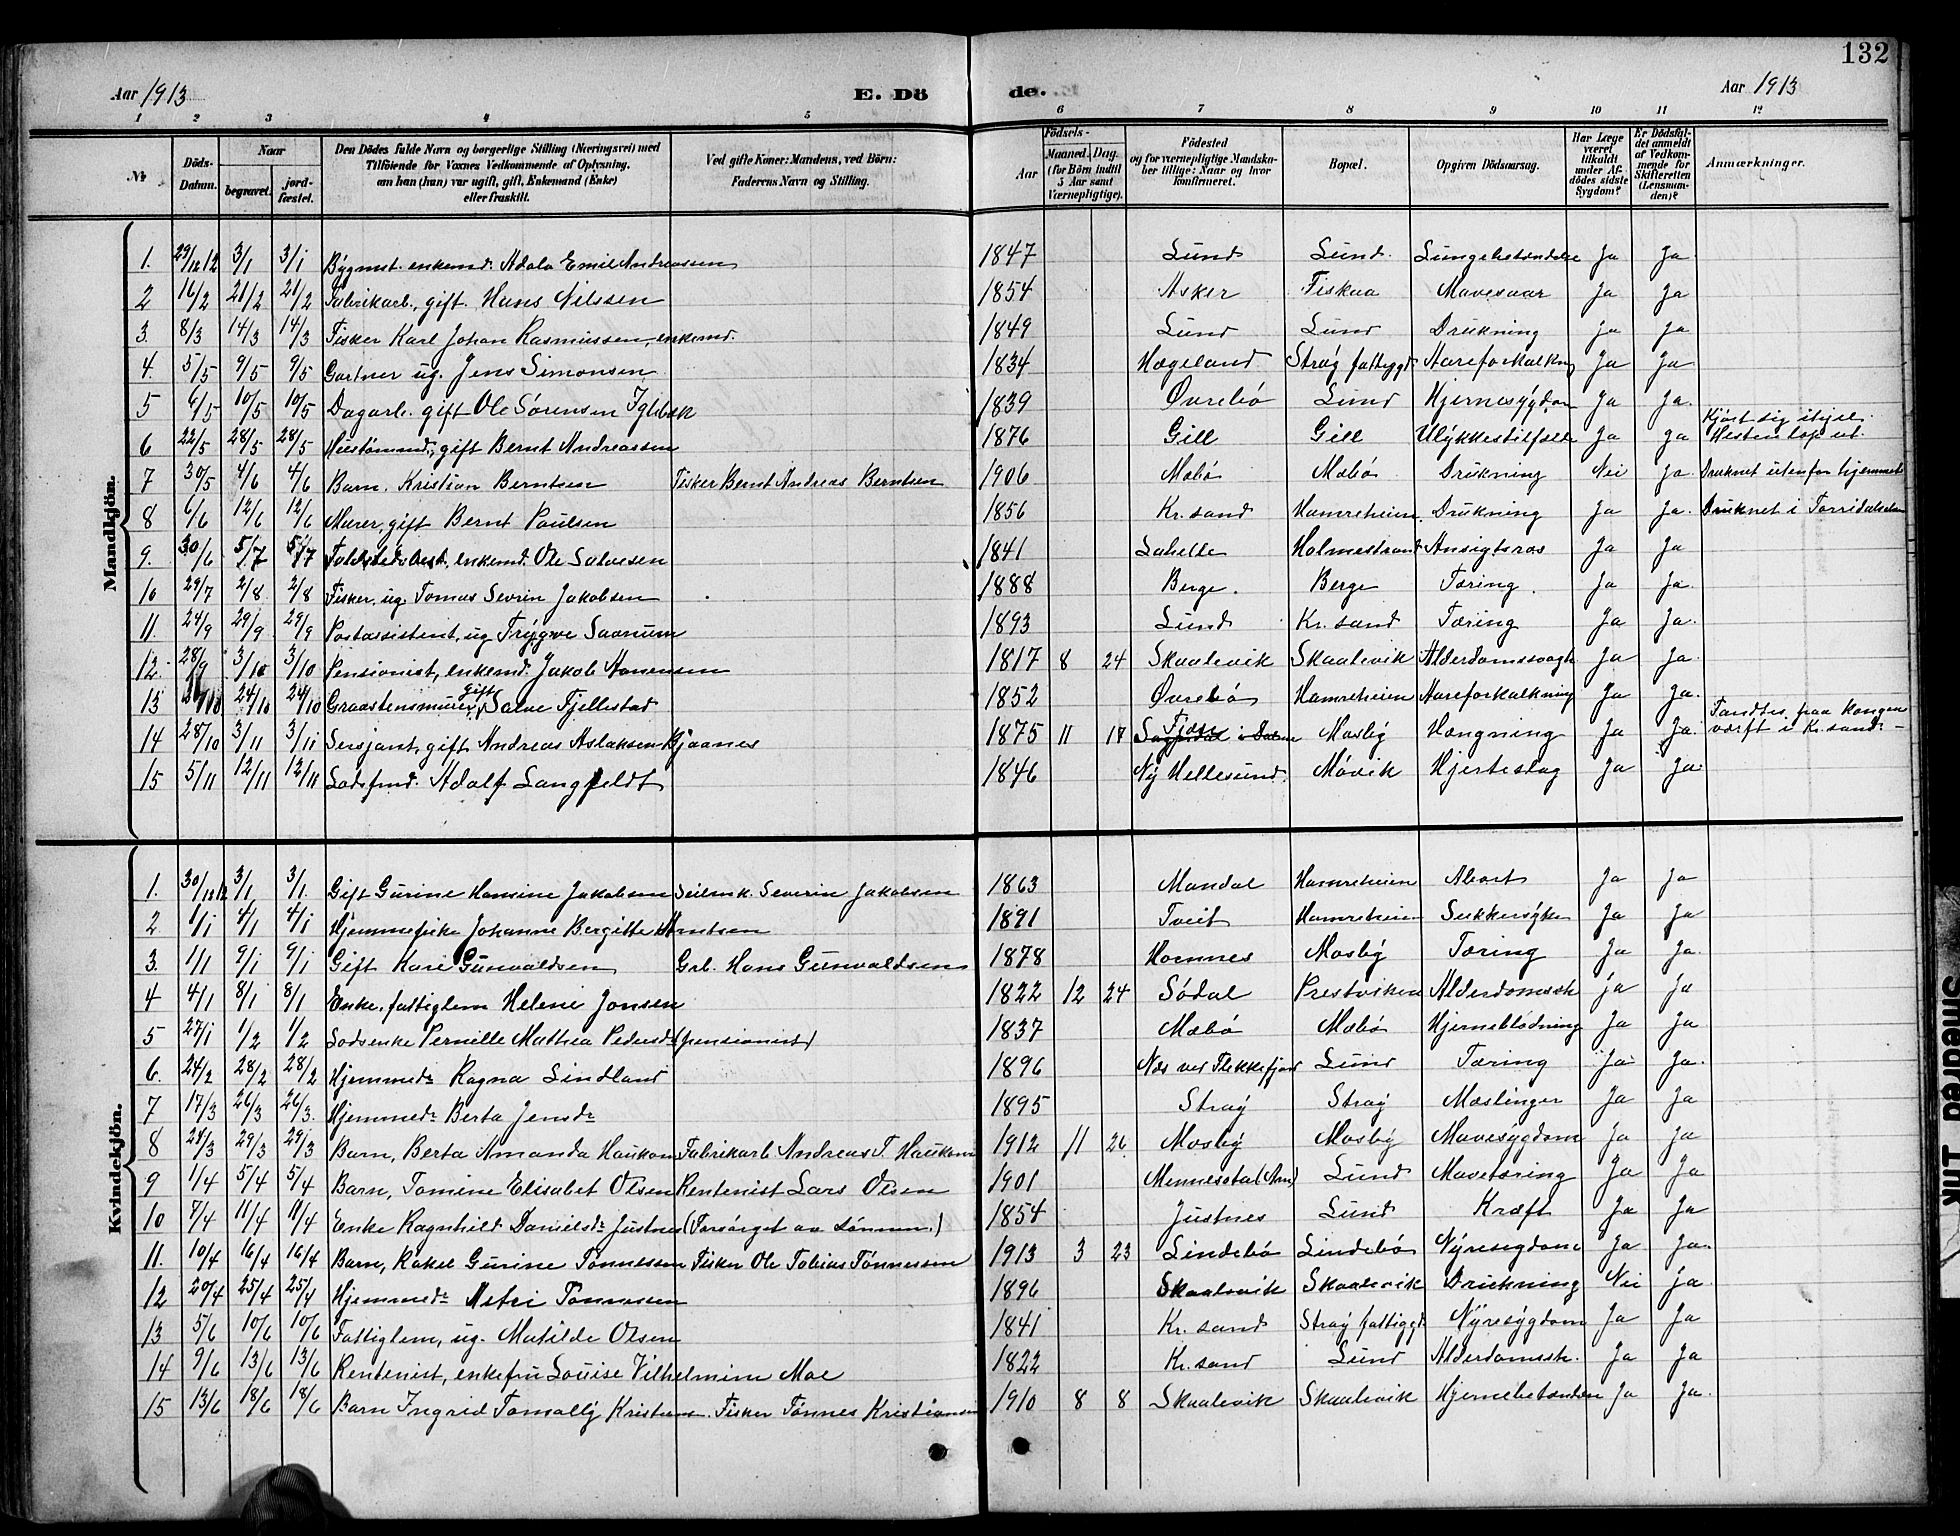 132
Aar 1913 E. Dö de. Aar 1913
1 2 3 4 5 6 7 8 9 10 11 12
№ Döds-Datum. Naar begravet. jordfæstet. Den Dödes fulde Navn og borgerlige Stilling (Næringsvei) med Tilföiende for Voxnes Vedkommende af Oplysning, om han (hun) var ugift, gift, Enkemand (Enke) eller fraskilt. Ved gifte Koner: Mandens, ved Börn: Faderens Navn og Stilling. Födsels- Aar Maaned. Dag. (for Börn indtil 5 Aar samt Værnepligtige). Födested og for værnepligtige Mandskaber tillige: Naar og hvor konfirmeret. Bopæl. Opgiven Dödsaarsag. Har Læge været tilkaldt under Afdödes sidste Sygdom? Er Dödsfaldet anmeldt af Vedkommende for Skifteretten (Lensmanden)? Anmærkninger.
Mandkjön.
1. 29/12 12 3/1 3/1 Bygmst. enkemd. Adolo Emil Andreassen 1847 Lund Lund. Lungebetændelse Ja Ja.
2 16/2 21/2 21/2 Fabrikarb., gift. Hans Nilssen 1854 Asker Fiskaa Mavesaar Ja Ja
3. 8/3 14/3 14/3 Fisker Karl Johan Rasmussen, enkemd. 1849 Lund Lund Drukning Ja Ja
4. 5/5 9/5 9/5 Gartner ug. Jens Simonsen 1834 Hægeland Stray fattiggd. Aareforkalkn Ja Ja
5 6/5 10/5 10/5 Dagarb. gift Ole Sørensen Iglebæk 1839 Øvrebö Lund Hjernesygdom Ja Ja.
6 22/5 28/5 28/5 gift Bernt Andreassen 1876 Gill Gill Ulykkestilfælde Ja Ja Kjørt sig ihjel. Hesten løp ut.
7 30/5 4/6 4/6 Barn. Kristian Berntsen Fisker Bernt Andreas Berntsen 1906 Mæbø Mæbø Drukning Nei Ja. Druknet utenfor hjemmet
8 6/6 12/6 12/6 Murer, gift Bernt Paulsen 1856 Kr. sand Hamreheien. Drukning Ja Ja. Druknet i Torridalselven
9. 30/6 5/7 5/7 enkemd. Ole Salvesen 1841 Holmestrand Ansigtsros Ja Ja
10 29/7 2/8 2/8 Fisker. ug. Tomas Sevrin Jakobsen 1888 Berge. Berge Tæring. Ja Ja.
11. 24/9 29/9 29/9 Postassistent, ug Trygve Saanum 1893 Lund Kr. sand Tæring Ja Ja.
12 28/9 3/10 3/10 Pensionist, enkemd. Jakob Aanensen 1817 8 24 Skaalevik Skaalevik Alderdomssvagh Ja Ja.
13 24/10 24/10 Graastensmurer, gift Salve Fjellestad 1852 Øvrebö Hamreheien Aareforkalkning Ja Ja.
14 28/10 3/11 3/11 Sersjant, gift Andreas Aslaksen Bjaanes 1875 11 17 Mosby Hængning Ja Ja. Fandtes paa kongens værft i Kr. sand. -
15 5/11 12/11 12/11 Lodsfmd. Adolf Langfeldt 1846 Ny Hellesund. Møvik Hjerteslag Ja Ja.
Kvindekjön.
1. 30/12 12 3/1 3/1. Gift Gurine Hansine Jakobsen Seilmk. Severin Jakobsen 1863 Mandal Hamreheien Abort Ja Ja
2 1/1 4/1 4/1 Hjemmepike Johanne Bergitte Arntsen 1891 Tveit Hamreheien Sukkersyke Ja Ja
3. 1/1 9/1 9/1 Gift Kari Gunvaldsen Grb. Hans Gunvaldsen 1878 Homnes Mosby Tæring Ja Ja.
4 4/1 8/1 8/1 Enke, fattiglem Helene Jonsen 1822 12 24 Södal Prestviken Alderdomssk Ja Ja
5 27/1 1/2 1/2 Lodsenke Pernille Mathea Pedersd. (pensionist) 1837 Mæbø Mæbø Hjerneblødning Ja Ja
6. 24/2 28/2 28/2 Hjemmedr Ragna Lindland 1896 Næs ved Flekkefjord Lund Tæring Ja Ja.
7 17/3 26/3 26/3. Hjemmedr Berta Jensdr 1895 Stray Stray Meslinger Ja Ja
8 24/3 29/3 29/3 Barn, Berta Amanda Haukom Fabrikarb Andreas T. Haukom 1912 11 26 Mosby Mosby Mavesygdom Ja Ja
9 1/4 5/4 5/4 Barn, Tomine Elisabet Olsen Rentenist Lars Olsen 1901 Lund Mavetæring Ja Ja
10 7/4 11/4 11/4 Enke Ragnhild Danielsdr Justnes (Forsørget av sønnen.) 1854 Justnes Lund Kræft Ja Ja
11. 10/4 16/4 16/4 Barn, Rakel Gurine Tønnessen Fisker Ole Tobias Tønnessen 1913 3 23 Lindebø Lindebø Nyresygdom Ja Ja.
12 20/4 25/4 25/4 Hjemmedr Astri Tønnessen 1896 Skaalevik Skaalevik Drukning Nei Ja
13 5/6 10/6 10/6 Fattiglem, ug. Matilde Olsen 1841 Kr. sand Stray fattiggd. Nyresygdom Ja Ja
14 9/6 13/6 13/6 Rentenist, enkefru Louise Vilhelmine Moe 1822 Kr. sand Lund Alderdomssk. Ja Ja
15 13/6 18/6 18/6 Barn Ingrid Tomally Kristians. Fisker Tønnes Kristiansen 1910 8 8 Skaalevik Skaalevik Hjernebetænden Ja Ja.